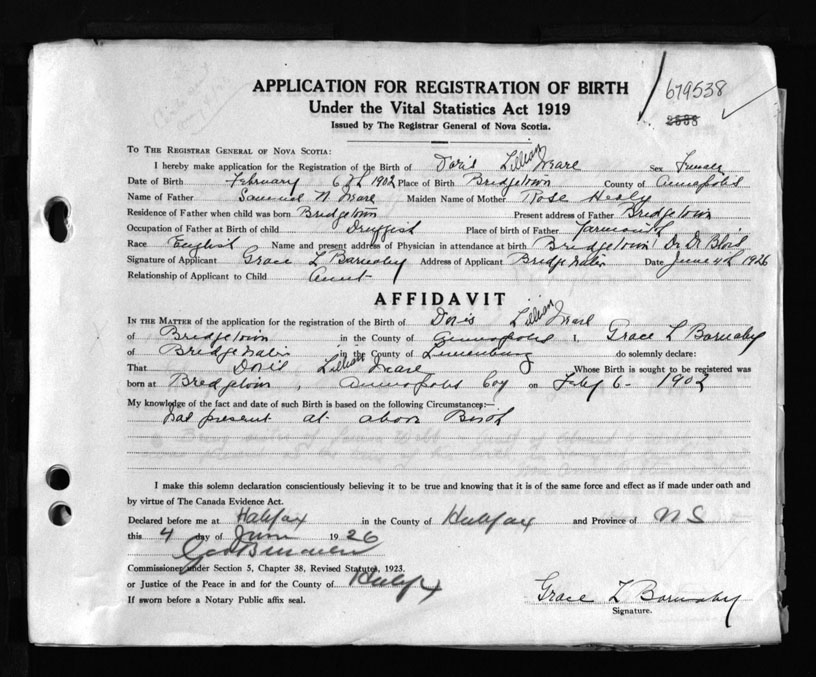 APPLICATION FOR REGISTRATION OF BIRTH
679538
Under the Vital Statistics Act 1919
2808
Issued by The Registrar General of Nova Scotia.
TO THE REGISTRAR GENERAL OF NOVA SCOTIA:
I hereby make application for the Registration of the Birth of Doris Lillian Sex Female
Date of Birth February 6th 1902 Place of Birth Bridgetown County of Annapolis
Name of Father Samuel N. Maiden Name of Mother Rose Healy
Residence of Father when child was born Bridgetown Present address of Father Bridgetown
Occupation of Father at Birth of child Druggist Place of birth of Father Yarmouth
Race English Name and present address of Physician in attendance at birth Bridgetown Dr. De Blois
Signature of Applicant Grace L Barnaby Address of Applicant Bridgewater Date June 4th 1926
Relationship of Applicant to Child Aunt
AFFIDAVIT
IN THE MATTER of the application for the registration of the Birth of Doris Lillian
of Bridgetown in the County of Annapolis I, Grace L Barnaby
of Bridgewater in the County of Lunenburg do solemnly declare:
That Doris Lillian Whose Birth is sought to be registered was
born at Bridgetown, Annapolis Coy on Feby 6 - 1902
My knowledge of the fact and date of such Birth is based on the following Circumstances:—
present at above Birth
I make this solemn declaration conscientiously believing it to be true and knowing that it is of the same force and effect as if made under oath and
by virtue of The Canada Evidence Act.
Declared before me at Halifax in the County of Halifax and Province of NS
this 4 day of June 1926
Commissioner under Section 5, Chapter 38, Revised Statutes, 1923.
or Justice of the Peace in and for the County of Halifax
If sworn before a Notary Public affix seal.
Grace L Barnaby
Signature.